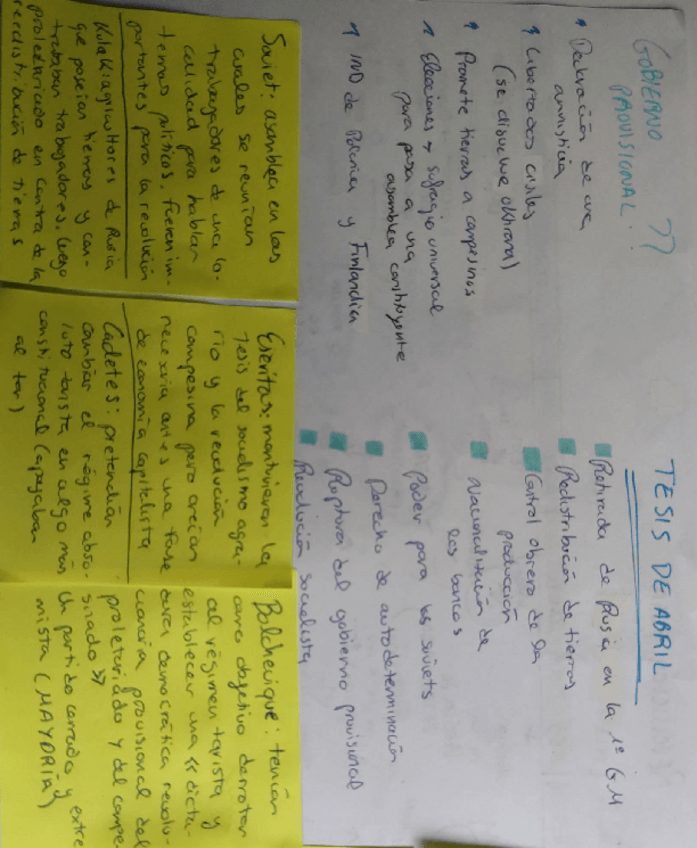 GOBIERNO
PROVISIONAL. ??
Declaración de una
amnistía
Libertades civiles
(se disuelve okhrana)
Promete tierras a campesinos
Elecciones → sufragio universal
para pasar a una
asamblea constituyente
IND de Polonia y Finlandia
TESIS DE ABRIL
Retirada de Rusia en la 1ª GM
Redistribución de tierras
Control obrero de la
producción
Nacionalización de
los bancos
Poder para los soviets
Derecho de autodeterminación
Ruptura del gobierno provisional
Revolución socialista
Soviet: asamblea en las
cuales se reunían
trabajadores de una lo-
calidad para hablar
temas políticos, fueron im-
portantes para la revolución
Kulaks: agricultores de Rusia
que poseían tierras y con-
trataban trabajadores. Luego
proletariado en contra de la
redistribución de tierras
Eseritas: mantuvieron la
tesis del socialismo agra-
rio y la revolución
campesina pero creían
necesaria antes una fase
de economía capitalista
Cadetes: pretendían
cambiar el régimen abso-
luto zarista en algo más
constitucional (apoyaban
al zar)
Bolchevique: tenían
como objetivo derrotar
al régimen zarista y
establecer una << dicta-
dura democrática revolu-
cionaria provisional del
proletariado y del campe-
sinado >>
Un partido cerrado y extre
mista (MAYORÍA)